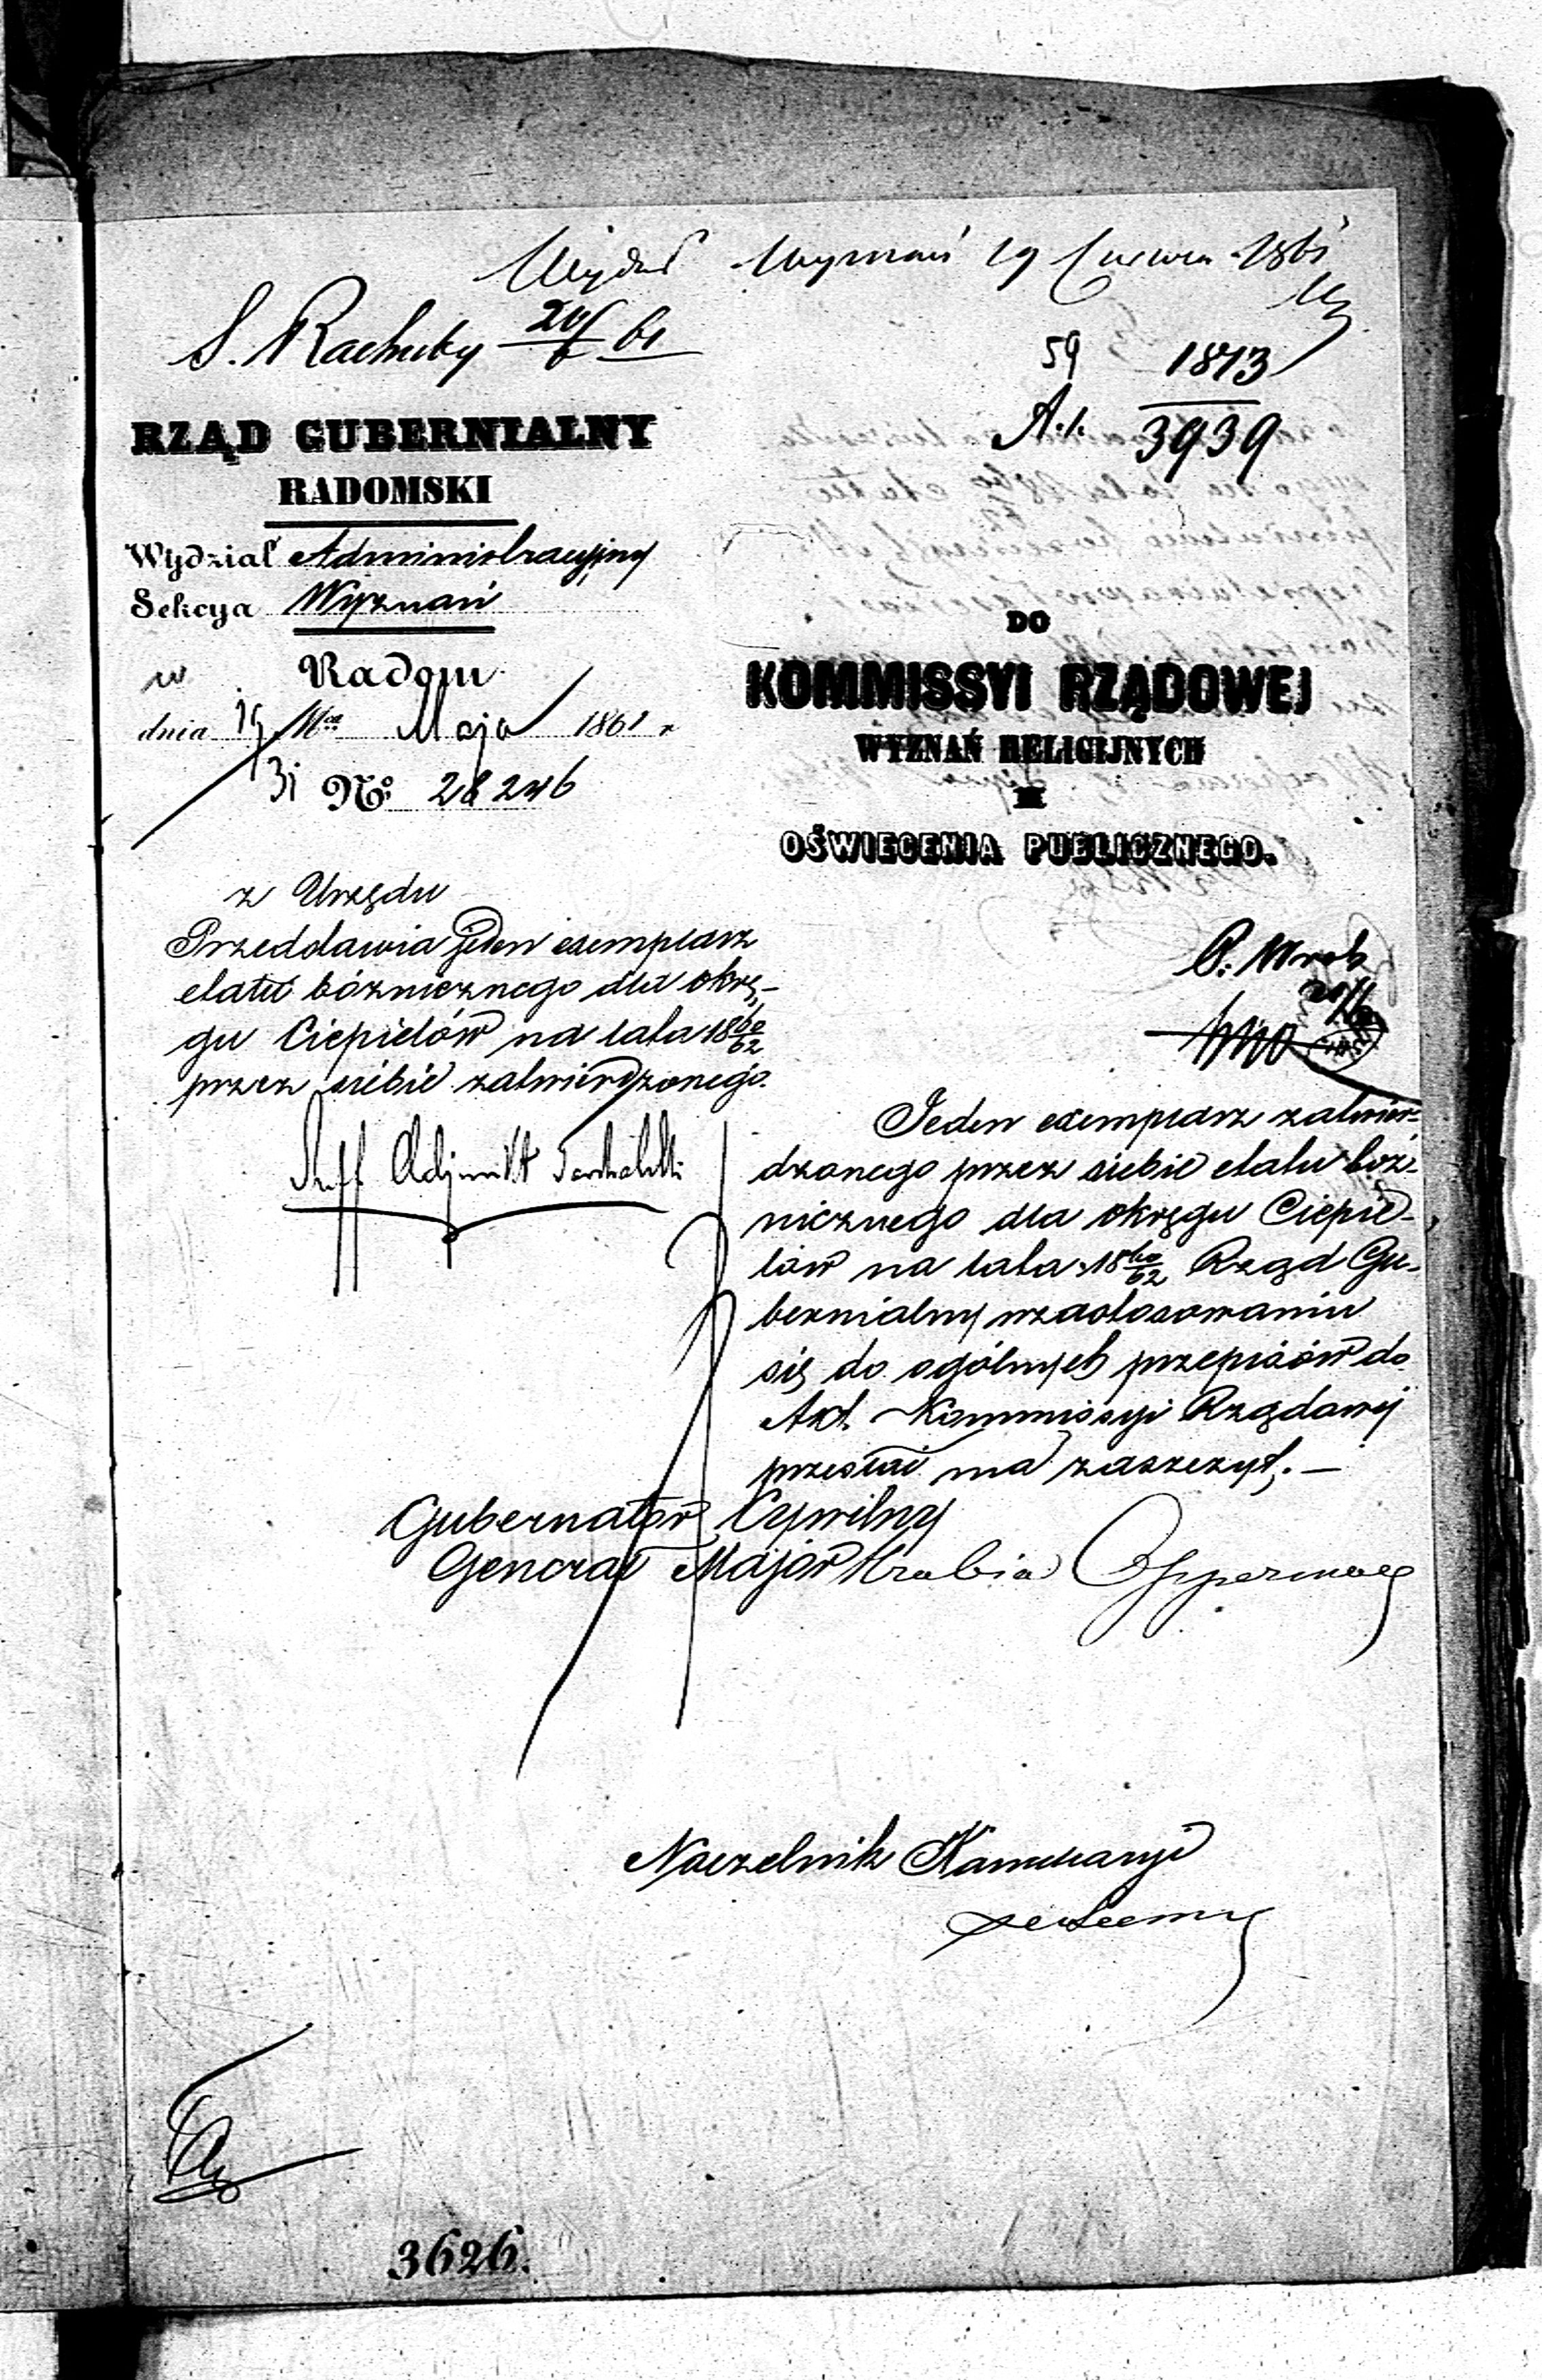 Wydział Wyznań 19 Czerwca 1861
S. Rachuby 20/6 61
59 1873
A.k. 3939
RZĄD GUBERNIALNY
RADOMSKI
Wydział Administracyjny
Sekcya Wyznań
w Radom
dnia 19/31 Maja 1861 r
№ 28246
DO
KOMMISSYI RZĄDOWEJ
WYZNAŃ RELIGIJNYCH
I
OŚWIECENIA PUBLICZNEGO.
z Urzędu
Przedstawia jeden exemplarz
etatu bóżnicznego dla okrę-
gu Ciepielów na lata 18 60/62
przez siebie zatwierdzonego.
Jeden exemplarz zatwier-
dzonego przez siebie etatu bóż-
nicznego dla okręgu Ciepie-
lów na lata 18 60/62 Rząd Gu-
bernialny w zastosowaniu
się do ogólnych przepisów do
Akt Kommissyi Rządowej
przesłać ma zaszczyt. —
Gubernator Cywilny
Generał Major Hrabia Opperman
Naczelnik Kancellaryi
3626.